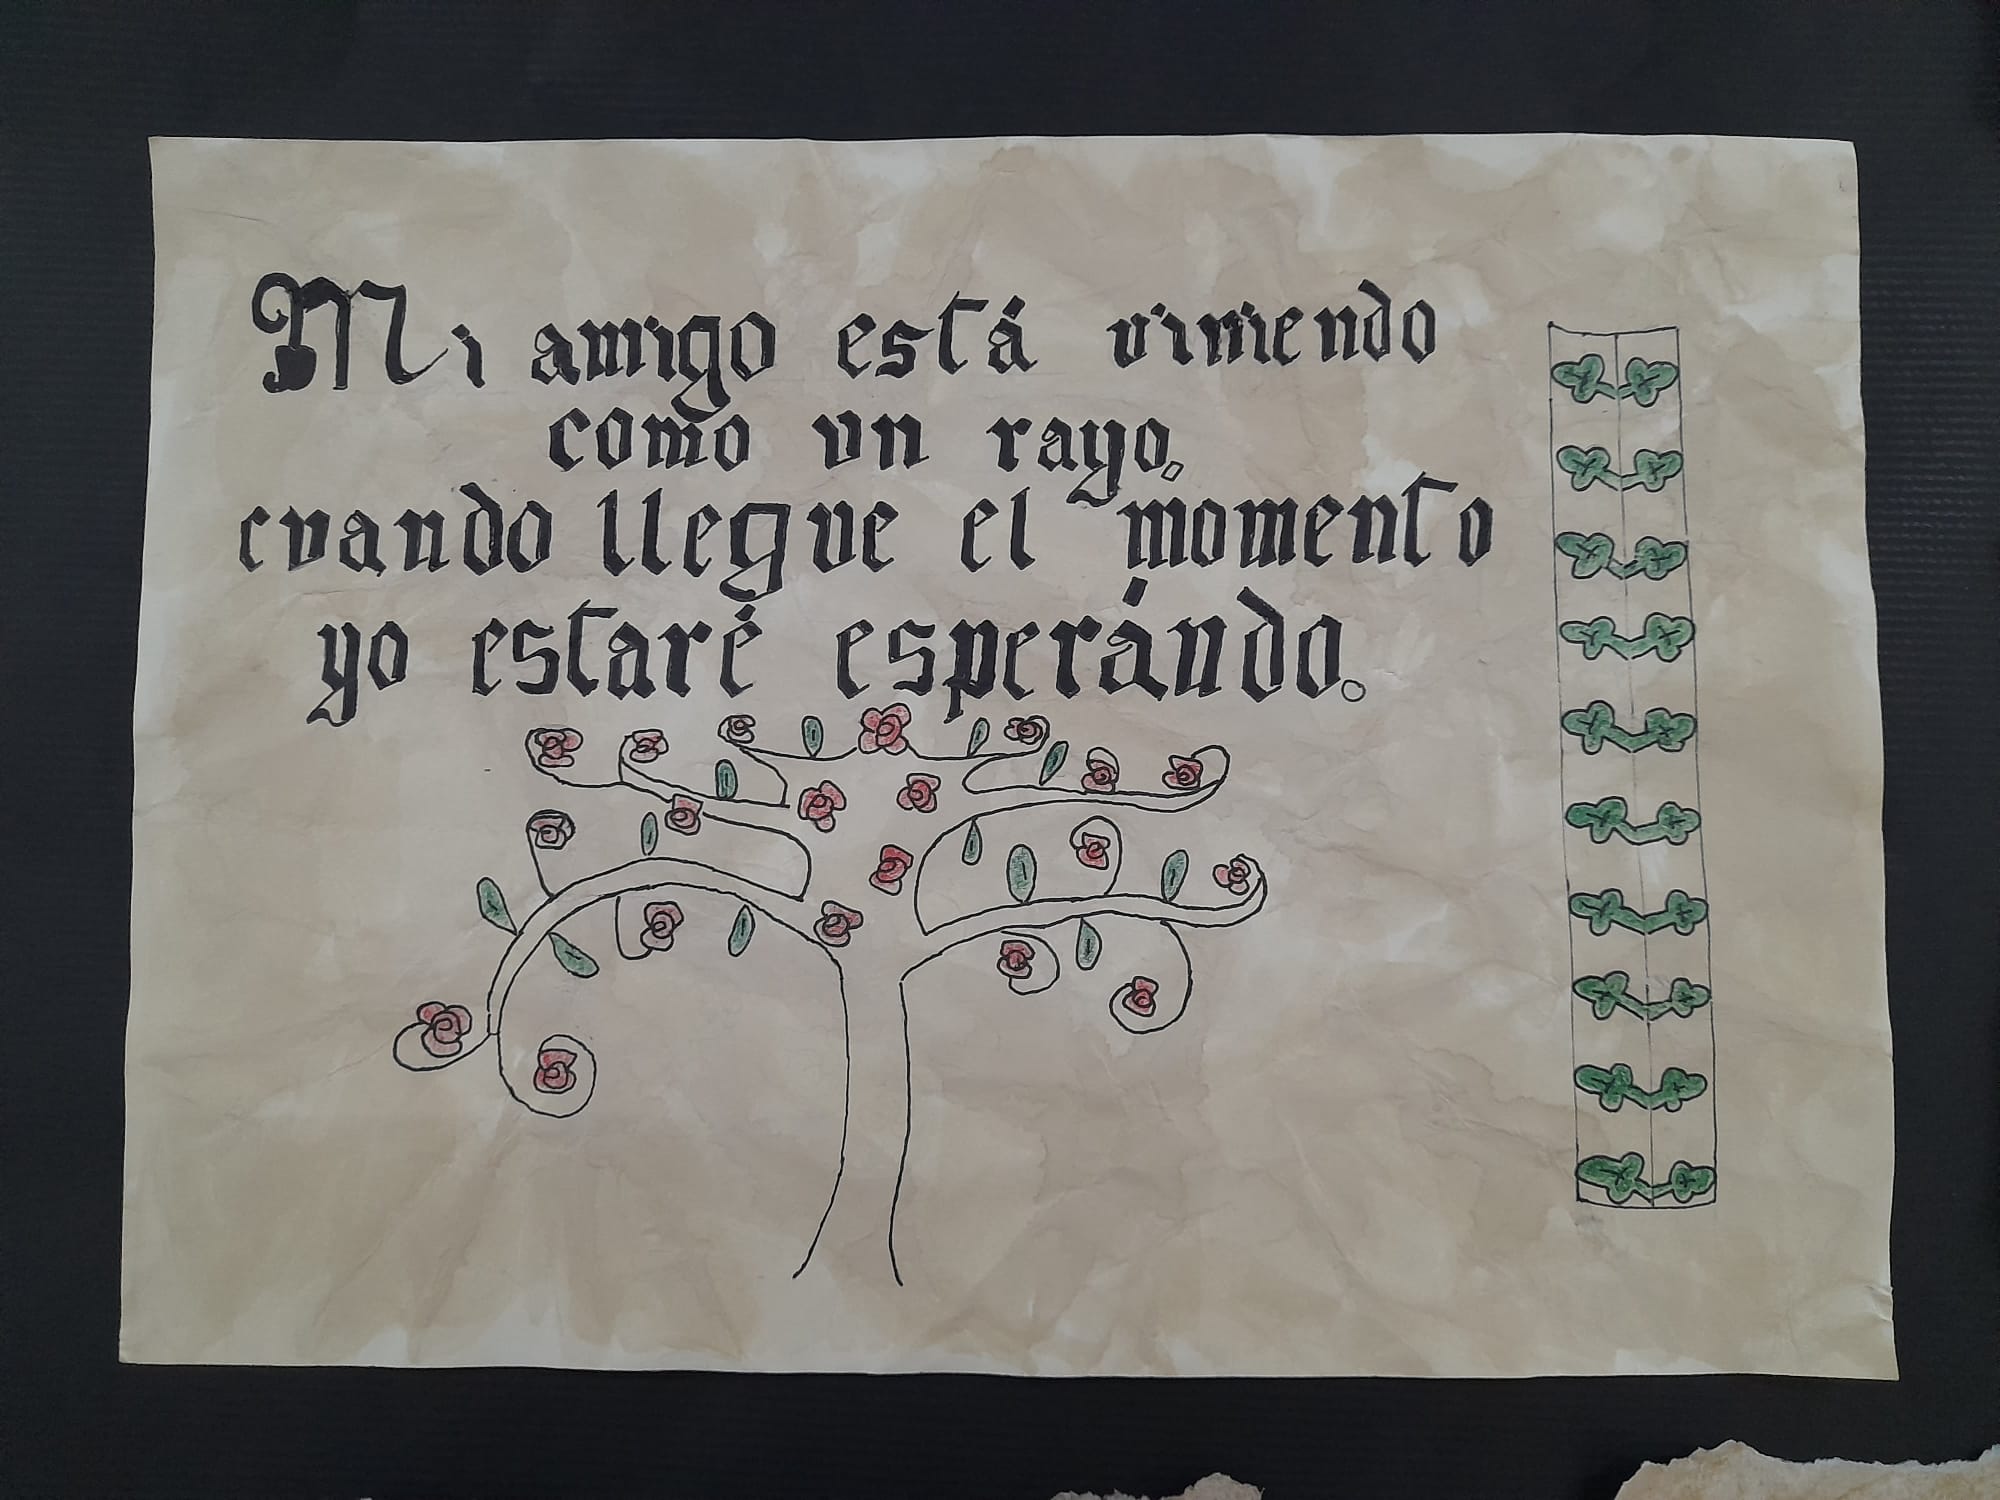 Mi amigo está viniendo
como un rayo.
cuando llegue el momento
yo estaré esperándo.